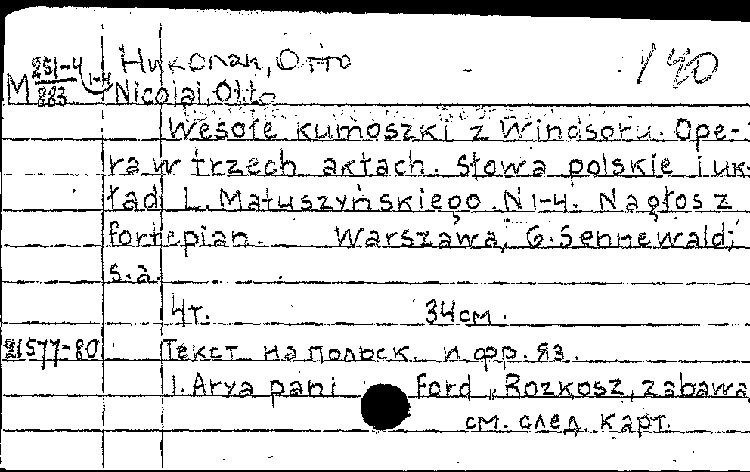 Николаи, Отто
140
М 251-4 1-4
883
Nicolai, Otto
Wesołe kumoszki z Windsoru. Ope-
ra w trzech aktach. Słowa polskie i uk-
ład L. Matuszyńskiego. N 1-4. Na głos z
fortepian. Warszawa, G. Sennewald,
s.a.
4т. 34см.
21577-80 Текст на польск. и фр. яз.
1. Arya pani Ford „Rozkosz, zabawa,
см. след. карт.